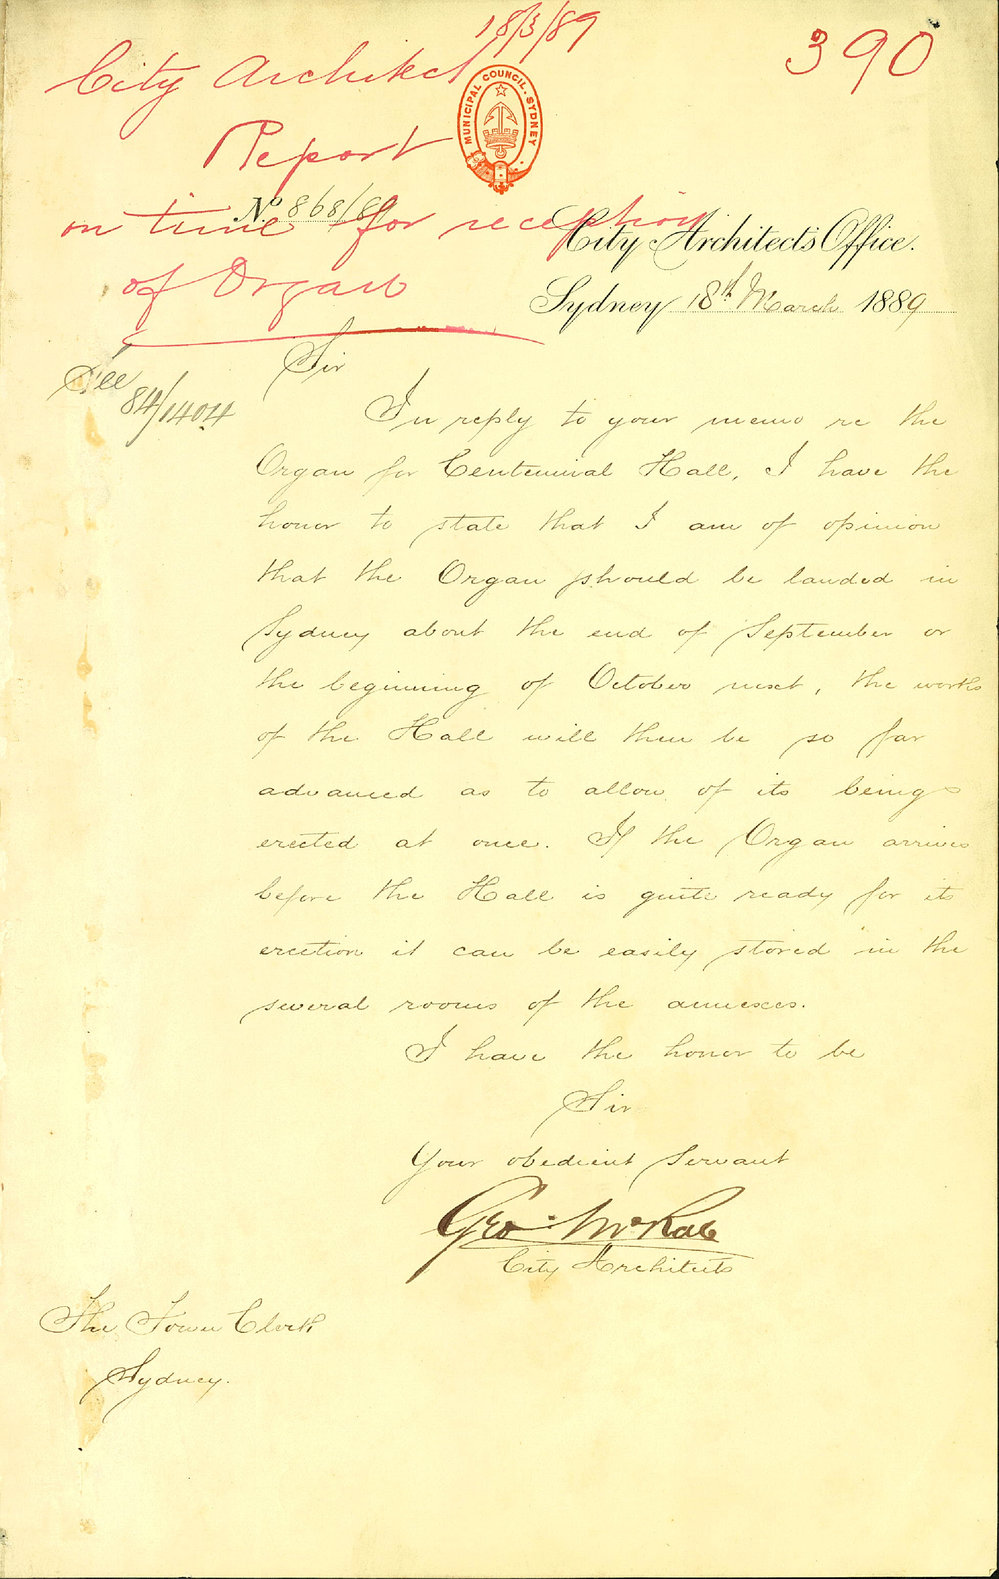 18/3/89
390
City Architect
Report
on time for reception
of Organ
MUNICIPAL COUNCIL. SYDNEY
No. 868/89
City Architect's Office.
Sydney 18th March 1889
See
84/1404
Sir
In reply to your memo re the
Organ for Centennial Hall, I have the
honor to state that I am of opinion
that the Organ should be landed in
Sydney about the end of September or
the beginning of October next, the works
of the Hall will then be so far
advanced as to allow of its being
erected at once. If the Organ arrives
before the Hall is quite ready for its
erection it can be easily stored in the
several rooms of the annexes.
I have the honor to be
Sir
Your obedient Servant
Geo. McRae
City Architect
The Town Clerk
Sydney.